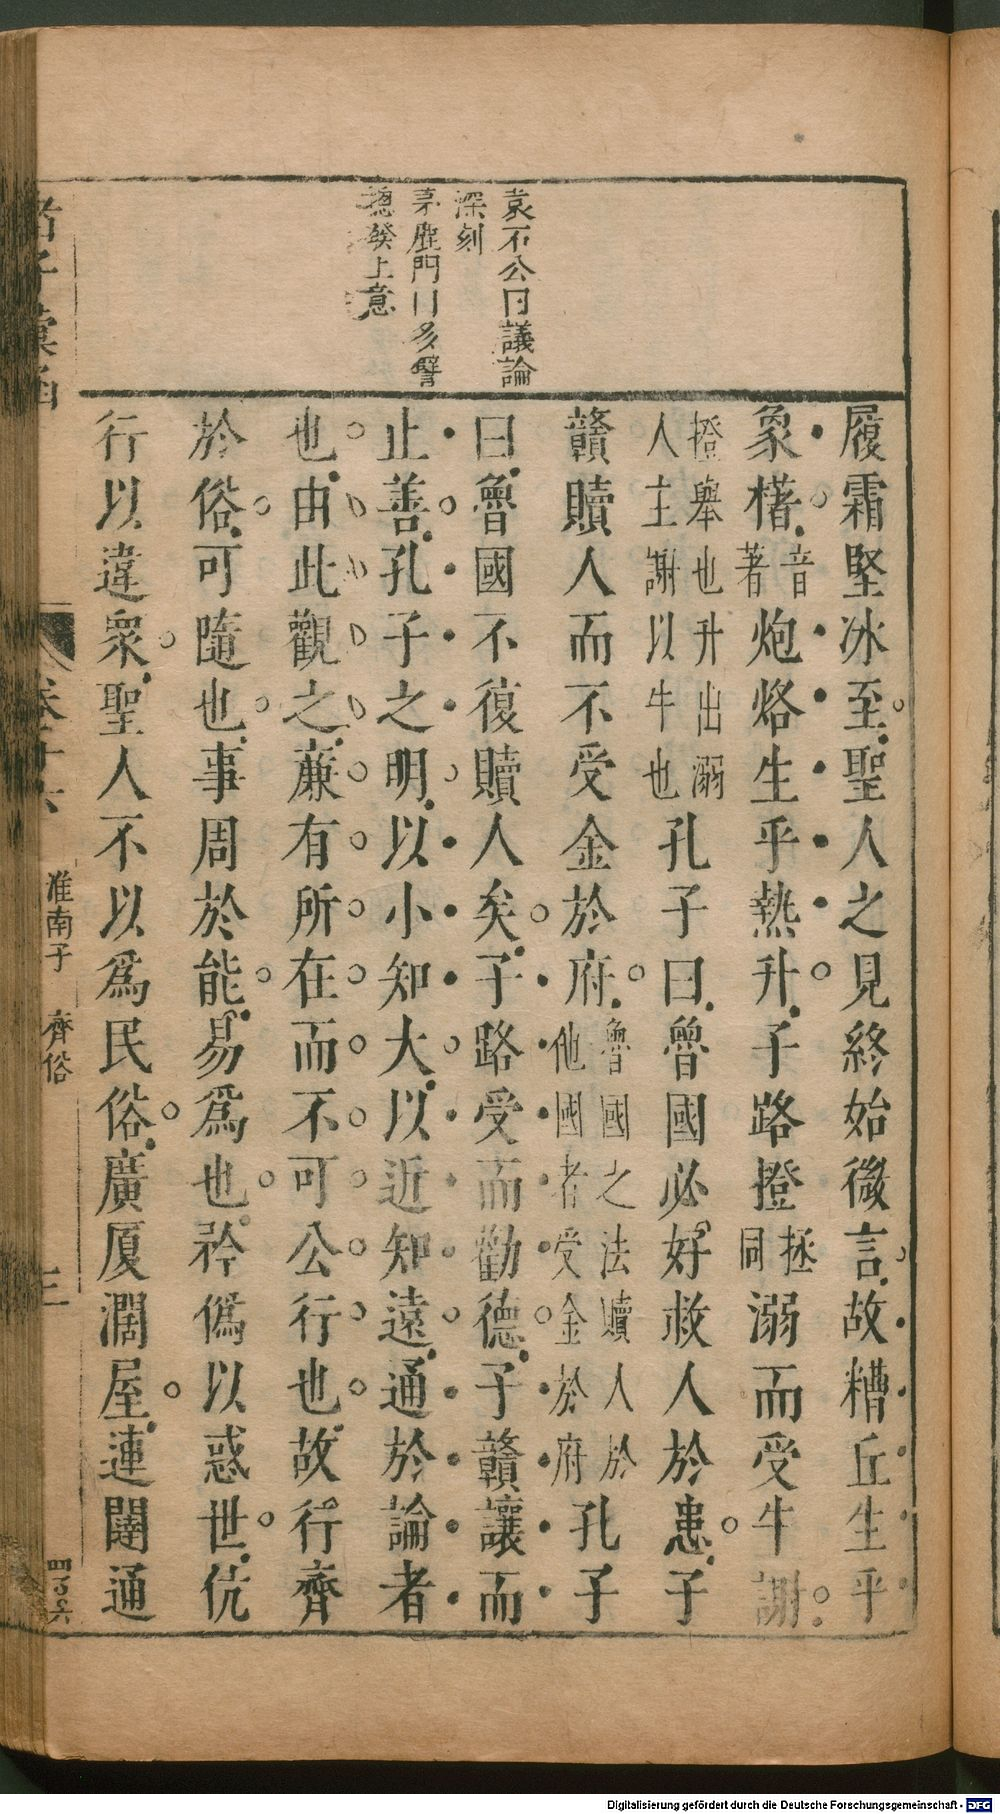 袁石公曰議論
深刻
茅鹿門曰多譬
總發上意
履霜堅冰至聖人之見終始微言故糟丘生乎
象櫡音著炮烙生乎熱升子路撜拯同溺而受牛謝
撜舉也升出溺人主謝以牛也孔子曰魯國必好救人於患子
贛贖人而不受金於府魯國之法贖人於他國者受金於府孔子
曰魯國不復贖人矣子路受而勸德子贛讓而
止善孔子之明以小知大以近知遠通於論者
也由此觀之廉有所在而不可公行也故行齊
於俗可隨也事周於能易爲也矜僞以惑世伉
行以違衆聖人不以爲民俗廣厦濶屋連闥通
諸子彙函
卷十六
淮南子 齊俗
三
Digitalisierung gefördert durch die Deutsche Forschungsgemeinschaft - DFG